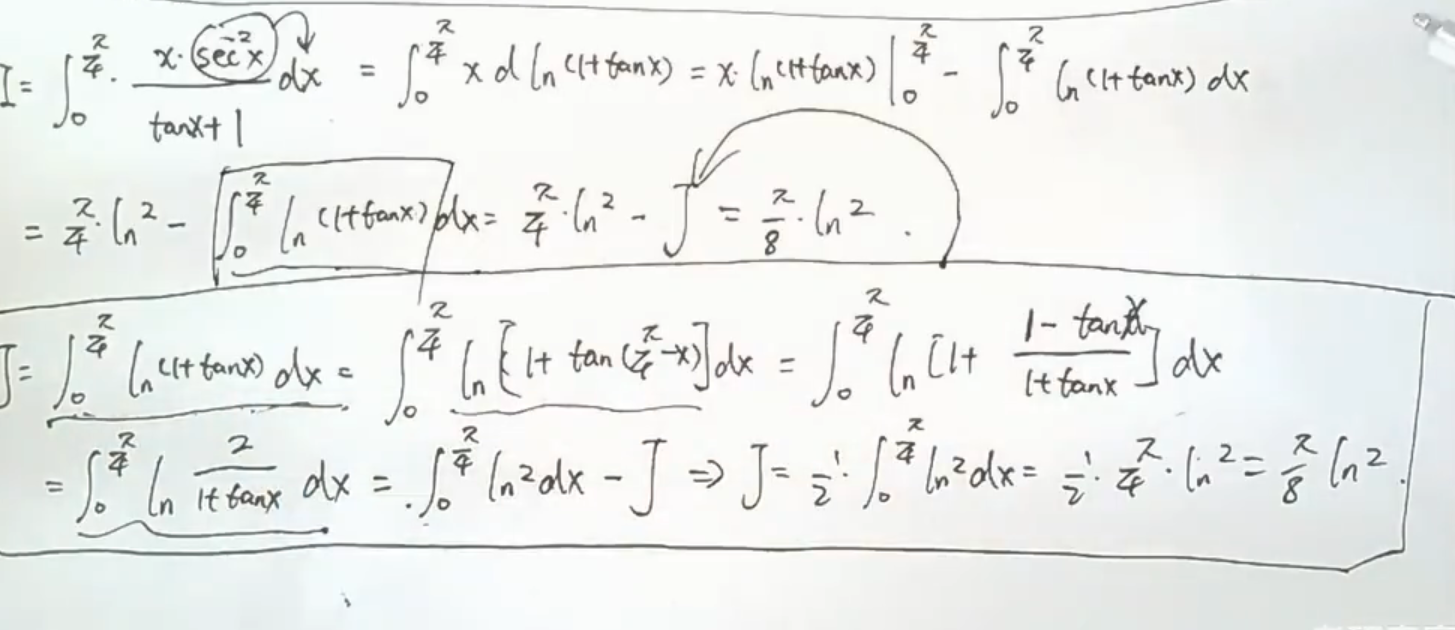 I = ∫₀^{π/4} · (x·sec²x)/(tanx+1) dx = ∫₀^{π/4} x d ln(1+tanx) = x·ln(1+tanx) |₀^{π/4} - ∫₀^{π/4} ln(1+tanx) dx
= π/4 · ln2 - ∫₀^{π/4} ln(1+tanx) dx = π/4 · ln2 - J = π/8 · ln2 .
J = ∫₀^{π/4} ln(1+tanx) dx = ∫₀^{π/4} ln[1+ tan(π/4-x)] dx = ∫₀^{π/4} ln[1+ (1-tanx)/(1+tanx)] dx
= ∫₀^{π/4} ln 2/(1+tanx) dx = ∫₀^{π/4} ln2 dx - J ⇒ J = 1/2 · ∫₀^{π/4} ln2 dx = 1/2 · π/4 · ln2 = π/8 ln2 .